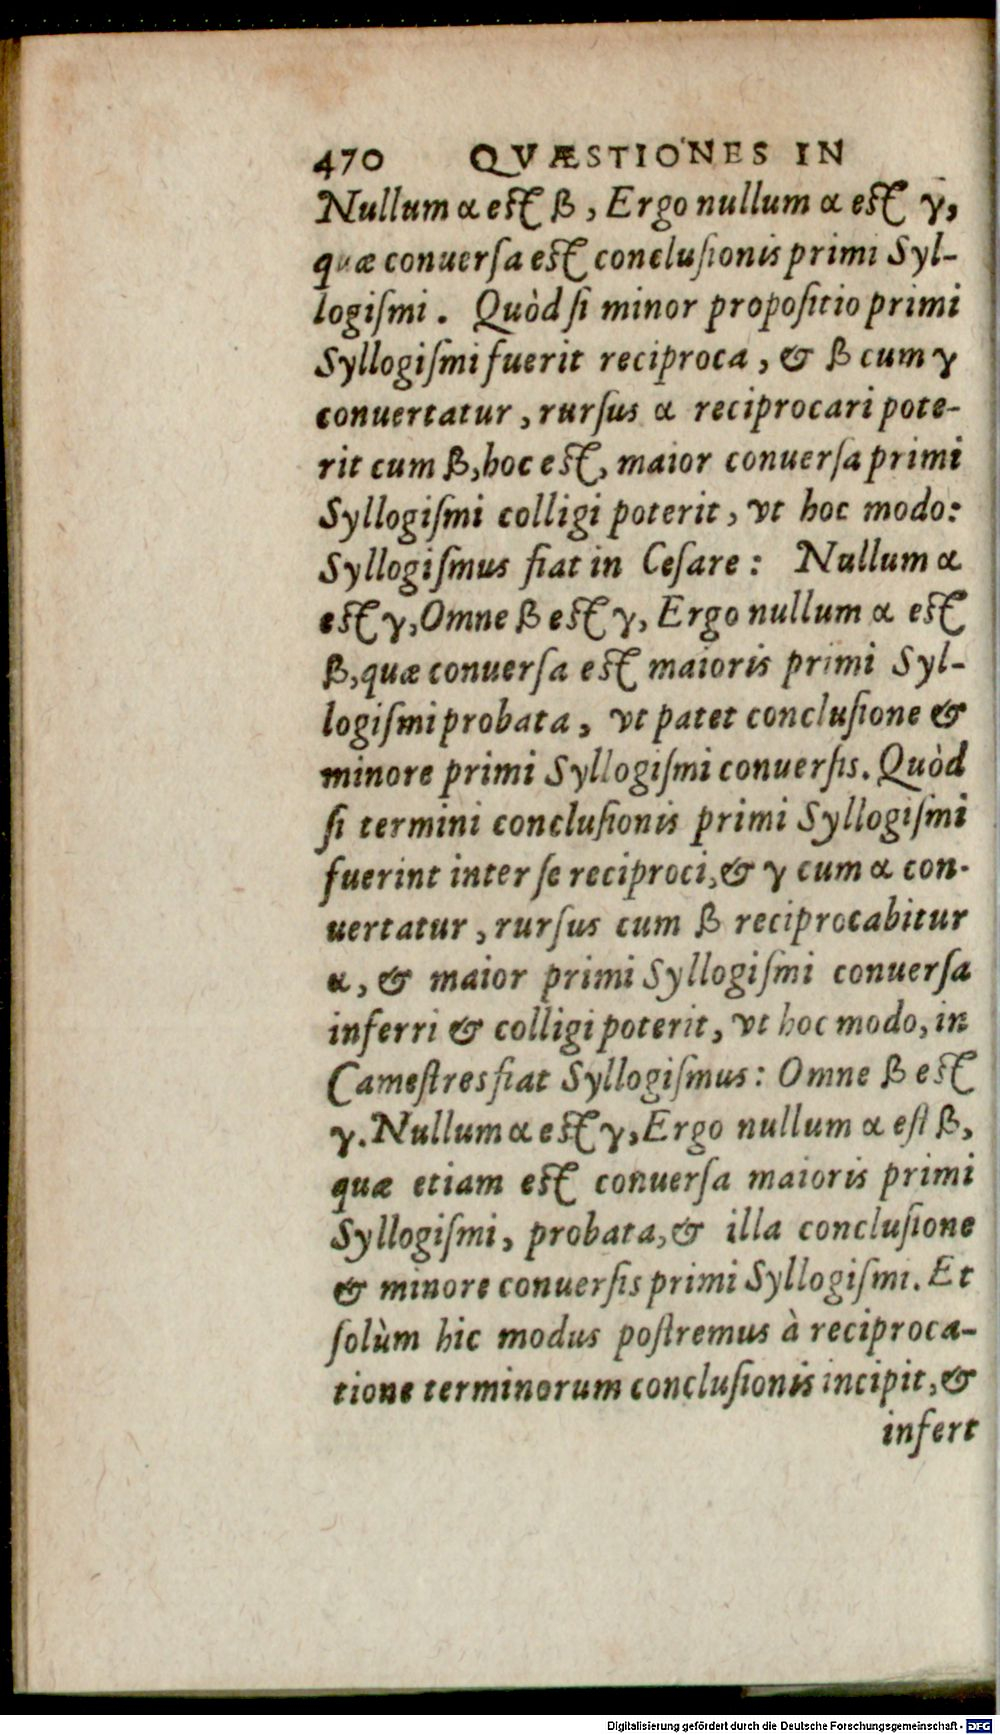 470 QVÆSTIONES IN
Nullum α eſt β, Ergo nullum α eſt γ,
quæ conuerſa eſt concluſionis primi Syl-
logiſmi. Quòd ſi minor propoſitio primi
Syllogiſmi fuerit reciproca, & β cum γ
conuertatur, rurſus α reciprocari pote-
rit cum β, hoc eſt, maior conuerſa primi
Syllogiſmi colligi poterit, vt hoc modo:
Syllogiſmus fiat in Ceſare: Nullum α
eſt γ, Omne β eſt γ, Ergo nullum α eſt
β, quæ conuerſa eſt maioris primi Syl-
logiſmi probata, vt patet concluſione &
minore primi Syllogiſmi conuerſis. Quòd
ſi termini concluſionis primi Syllogiſmi
fuerint inter ſe reciproci, & γ cum α con-
uertatur, rurſus cum β reciprocabitur
α, & maior primi Syllogiſmi conuerſa
inferri & colligi poterit, vt hoc modo, in
Cameſtres fiat Syllogiſmus: Omne β eſt
γ. Nullum α eſt γ, Ergo nullum α eſt β,
quæ etiam eſt conuerſa maioris primi
Syllogiſmi, probata, & illa concluſione
& minore conuerſis primi Syllogiſmi. Et
ſolùm hic modus poſtremus à reciproca-
tione terminorum concluſionis incipit, &
infert
Digitalisierung gefördert durch die Deutsche Forschungsgemeinschaft - DFG